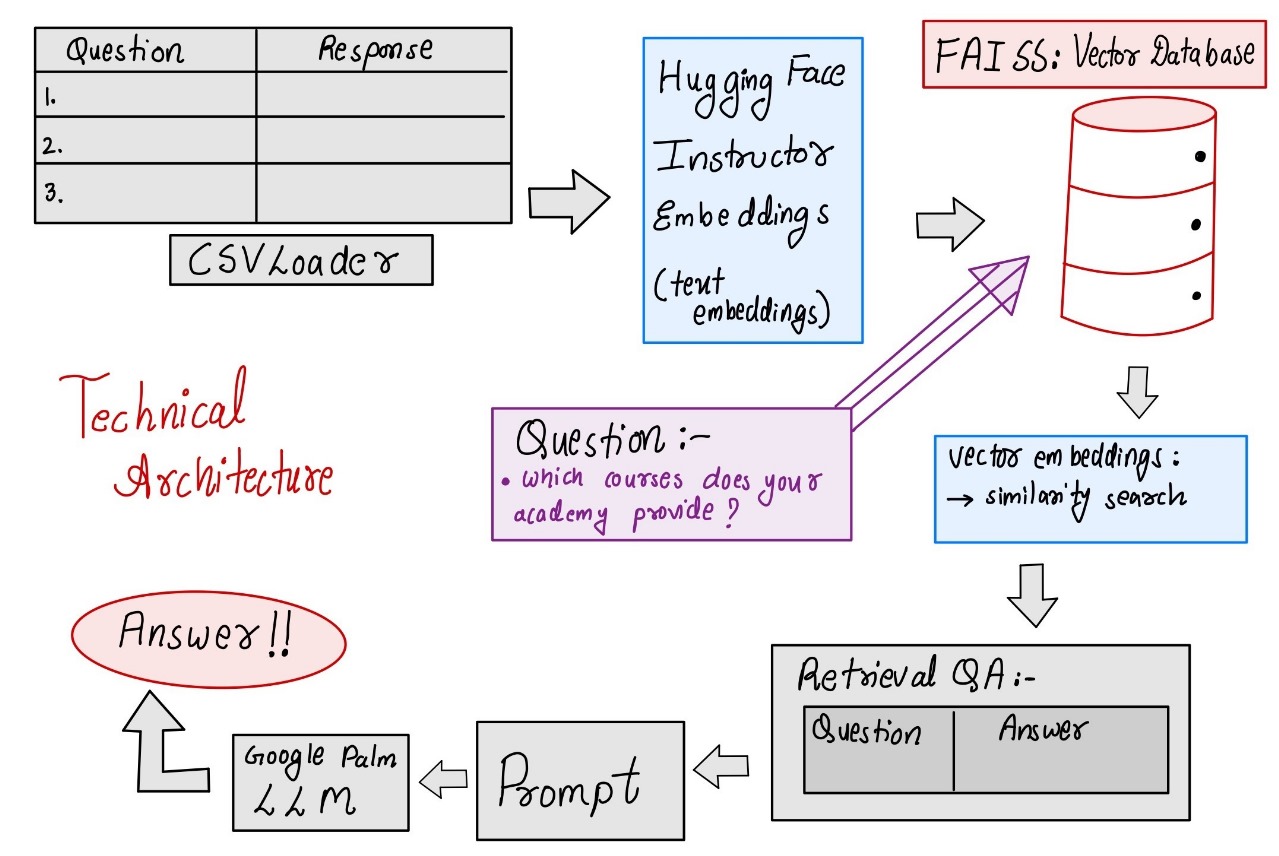 Question
Response
1.
2.
3.
CSVLoader
Hugging Face
Instructor
Embeddings
(text
embeddings)
FAISS: Vector Database
Technical
Architecture
Question :-
• which courses does your
academy provide ?
vector embeddings :
→ similarity search
Retrieval QA :-
Question
Answer
Prompt
Google Palm
LLM
Answer!!